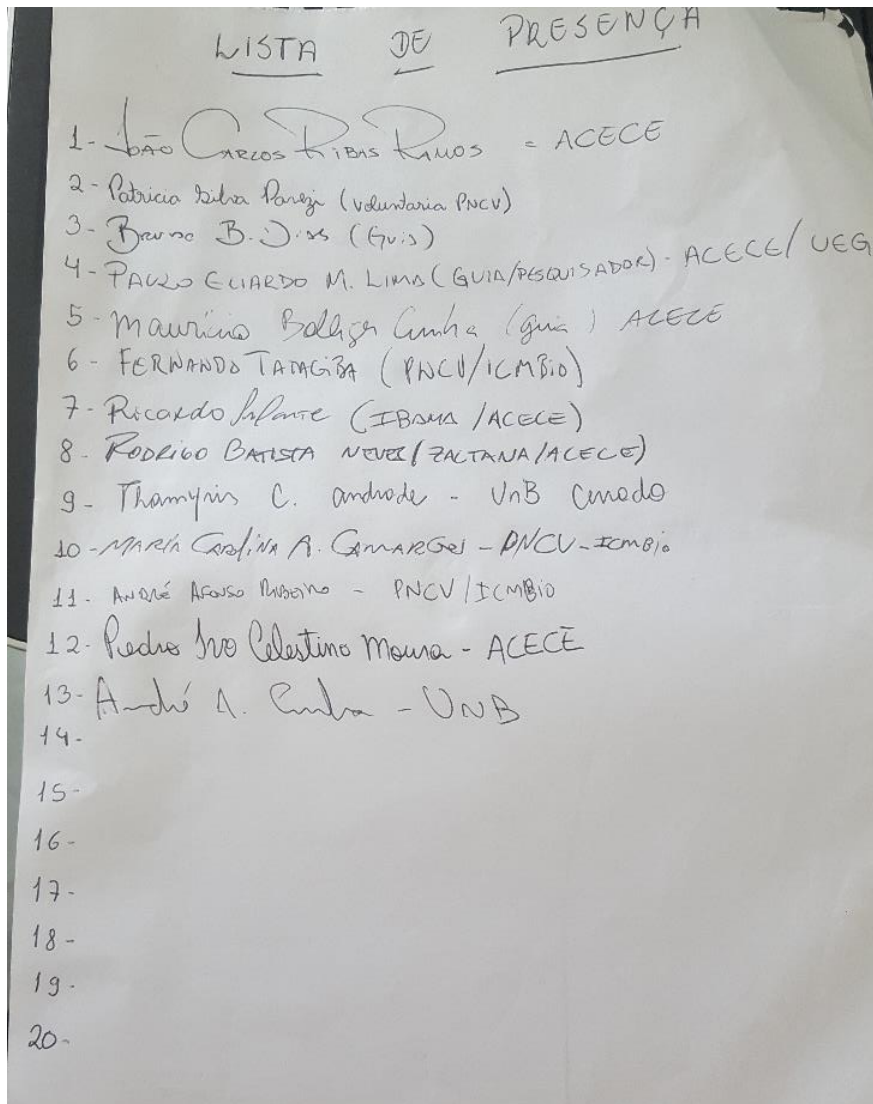 LISTA DE PRESENÇA
1- João Carlos Ribas Ramos - ACECE
2- Patricia Silva (voluntaria PNCV)
3- Bruno B. Dias (Guia)
4- PAULO M. LIMA (GUIA/PESQUISADOR) - ACECE/UEG
5- Maurício Cunha (guia) ACECE
6- FERNANDO TATAGIBA (PNCV/ICMBio)
7- Ricardo (IBAMA/ACECE)
8- RODRIGO BATISTA NEVES (ZALTANA/ACECE)
9- Thamyris C. andrade - UnB Cerrado
10- MARIA CAROLINA A. CAMARGOS - PNCV-ICMBio
11- ANDRÉ AFONSO RIBEIRO - PNCV/ICMBIO
12- Piedro Ivo Celestino Moura - ACECE
13- André A. Cunha - UNB
14-
15-
16-
17-
18-
19-
20-